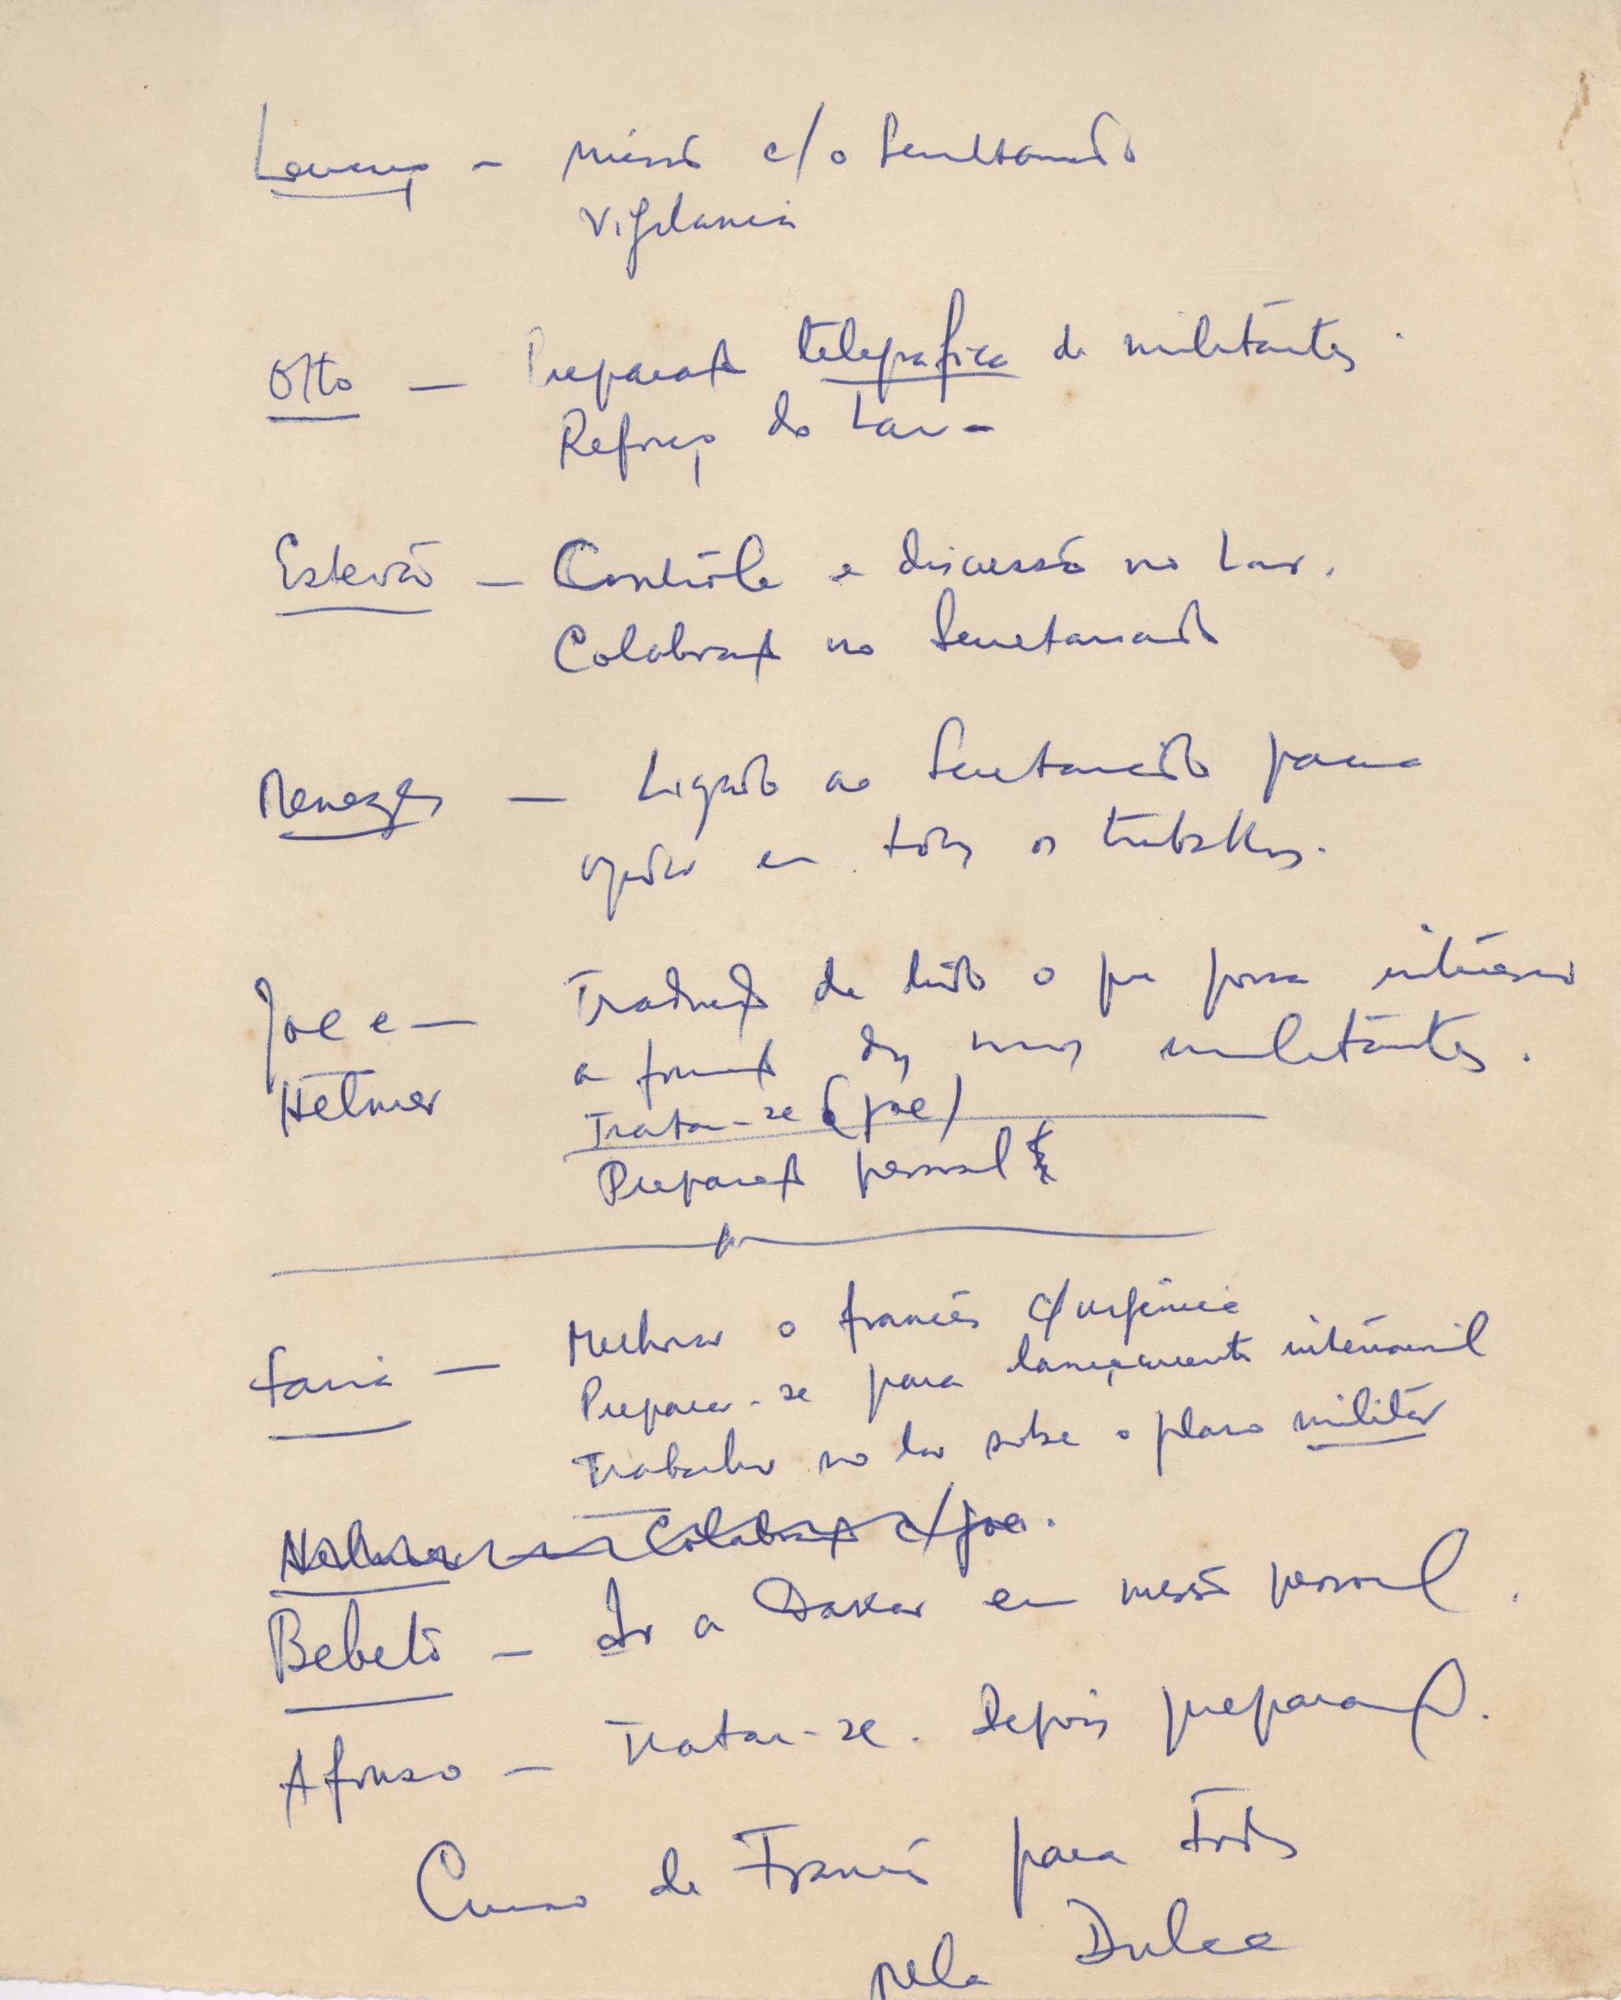 Lourenço - Missão c/o Secretariado
Vigilância
Otto - Preparação telegráfica de militantes.
Reforço do Lar -
Estevão - Contrôle e discussão no Lar.
Colaboração no Secretariado
Menezes - Ligado ao Secretariado para
ajudar em todos os trabalhos.
Joe e - Tradução de tudo o que possa interessar
Hélmer a formação dos nossos militantes.
Tratar-se (Joe)
Preparação pessoal
Faria - Melhorar o francês c/urgência
Preparar-se para lançamento internacional
Trabalhar no lar sobre o plano militar
Colaboração c/Joe.
Bebeto - Ir a Dakar em missão pessoal.
Afonso - Tratar-se. Depois preparação.
Curso de Francês para todos
pela Dulce